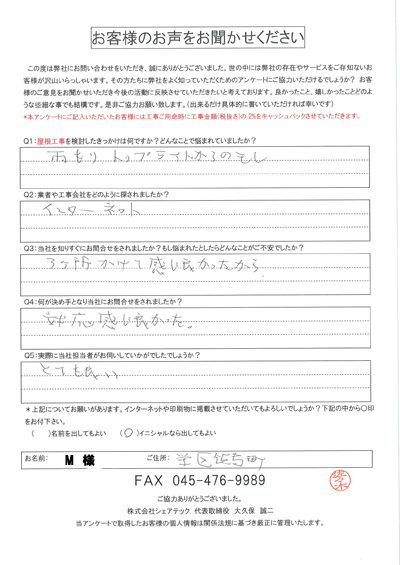 お客様のお声をお聞かせください
この度は弊社にお問い合わせをいただき、誠にありがとうございました。世の中には弊社の存在やサービスをご存知ないお
客様が沢山いらっしゃいます。その方たちに弊社をよく知っていただくためのアンケートにご協力いただけるでしょうか? お客
様のご意見をお聞かせいただき今後の活動に反映させていただきたいと考えております。良かったこと、嬉しかったことどのよ
うな些細な事でも結構です。是非ご協力お願い致します。(出来るだけ具体的に書いていただければ幸いです)
*本アンケートにご記入いただいたお客様には工事ご用命時に工事金額(税抜き)の 2%をキャッシュバックさせていただきます。
Q1:屋根工事を検討したきっかけは何ですか?どんなことで悩まれていましたか?
雨もり トップライトからのもし
Q2:業者や工事会社をどのように探されましたか?
インターネット
Q3:当社を知りすぐにお問合せをされましたか?もし悩まれたとしたらどんなことがご不安でしたか?
3ヶ所かけて感じ良かったから
Q4:何が決め手となり当社にお問合せをされましたか?
対応感じ良かった。
Q5:実際に当社担当者がお伺いしていかがでしたでしょうか?
とても良い
*上記についてお願いがあります。インターネットや印刷物に掲載させていただいてもよろしいでしょうか?下記の中から〇印
をお付下さい。
( )名前を出してもよい (〇)イニシャルなら出してもよい
お名前: M 様 ご住所:
FAX 045-476-9989
ご協力ありがとうございました。
株式会社シェアテック 代表取締役 大久保 誠二
当アンケートで取得したお客様の個人情報は関係法規に基づき厳正に管理いたします。